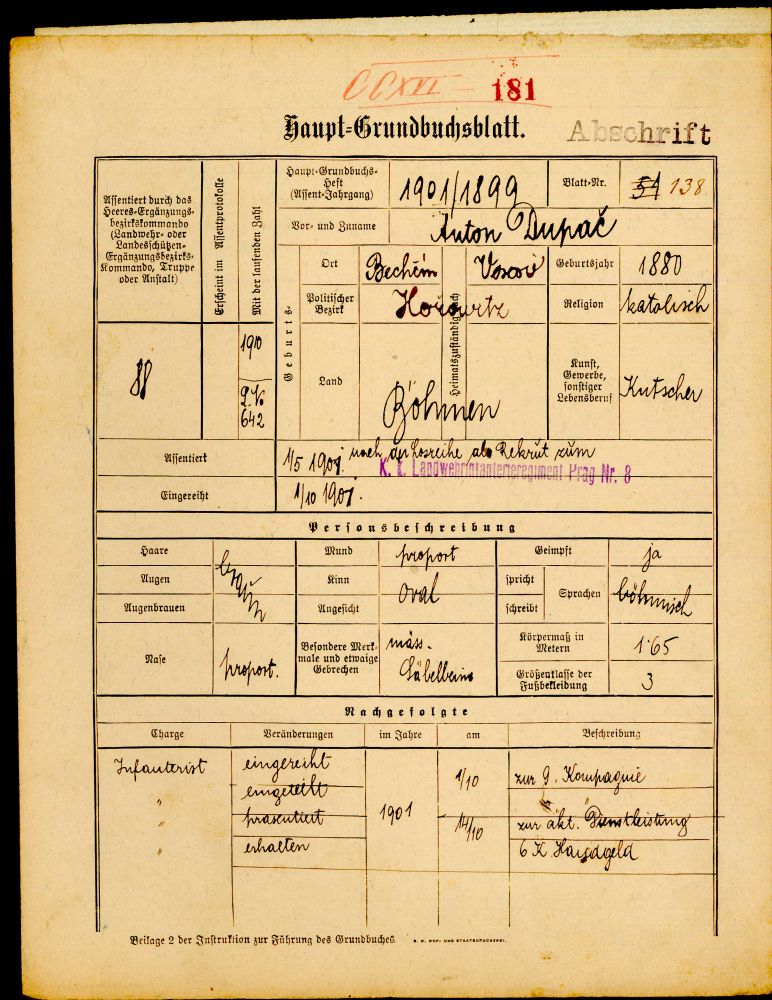 CCXVI — 181
Haupt-Grundbuchsblatt. Abschrift
Assentiert durch das
Heeres-Ergänzungs-
bezirkskommando
(Landwehr- oder
Landesschützen-
Ergänzungsbezirks-
Kommando, Truppe
oder Anstalt)
88
Erscheint im Assentprotokolle
Mit der laufenden Zahl
1910
642
Haupt-Grundbuchs-
Heft
(Assent-Jahrgang)
1901/1899
Blatt-Nr.
51 138
Vor- und Zuname
Anton Dupač
Geburts-
Ort
Bechčin
Heimatszuständig
Geburtsjahr
1880
Politischer
Bezirk
Hořowitz
Religion
katolisch
Land
Böhmen
Kunst,
Gewerbe,
sonstiger
Lebensberuf
Kutscher
Assentiert
1/5 1901 nach der Losreihe als Rekrut zum
K. k. Landwehrinfanterieregiment Prag Nr. 8
Eingereiht
1/10 1901.
Personsbeschreibung
Haare
Augen
Augenbrauen
braun
Nase
proport.
Mund
proport
Kinn
Angesicht
oval
Besondere Merk-
male und etwaige
Gebrechen
mäss.
Säbelbeine
Geimpft
ja
spricht
schreibt
Sprachen
böhmisch
Körpermaß in
Metern
1·65
Größenklasse der
Fußbekleidung
3
Nachgefolgte
Charge Veränderungen im Jahre am Beschreibung
Infanterist eingereiht 1/10 zur 9. Kompagnie
" eingeteilt
" präsentiert 1901 14/10 zur akt. Dienstleistung
" erhalten 6 K Handgeld
Beilage 2 der Instruktion zur Führung des Grundbuches. K. K. HOF- UND STAATSDRUCKEREI.